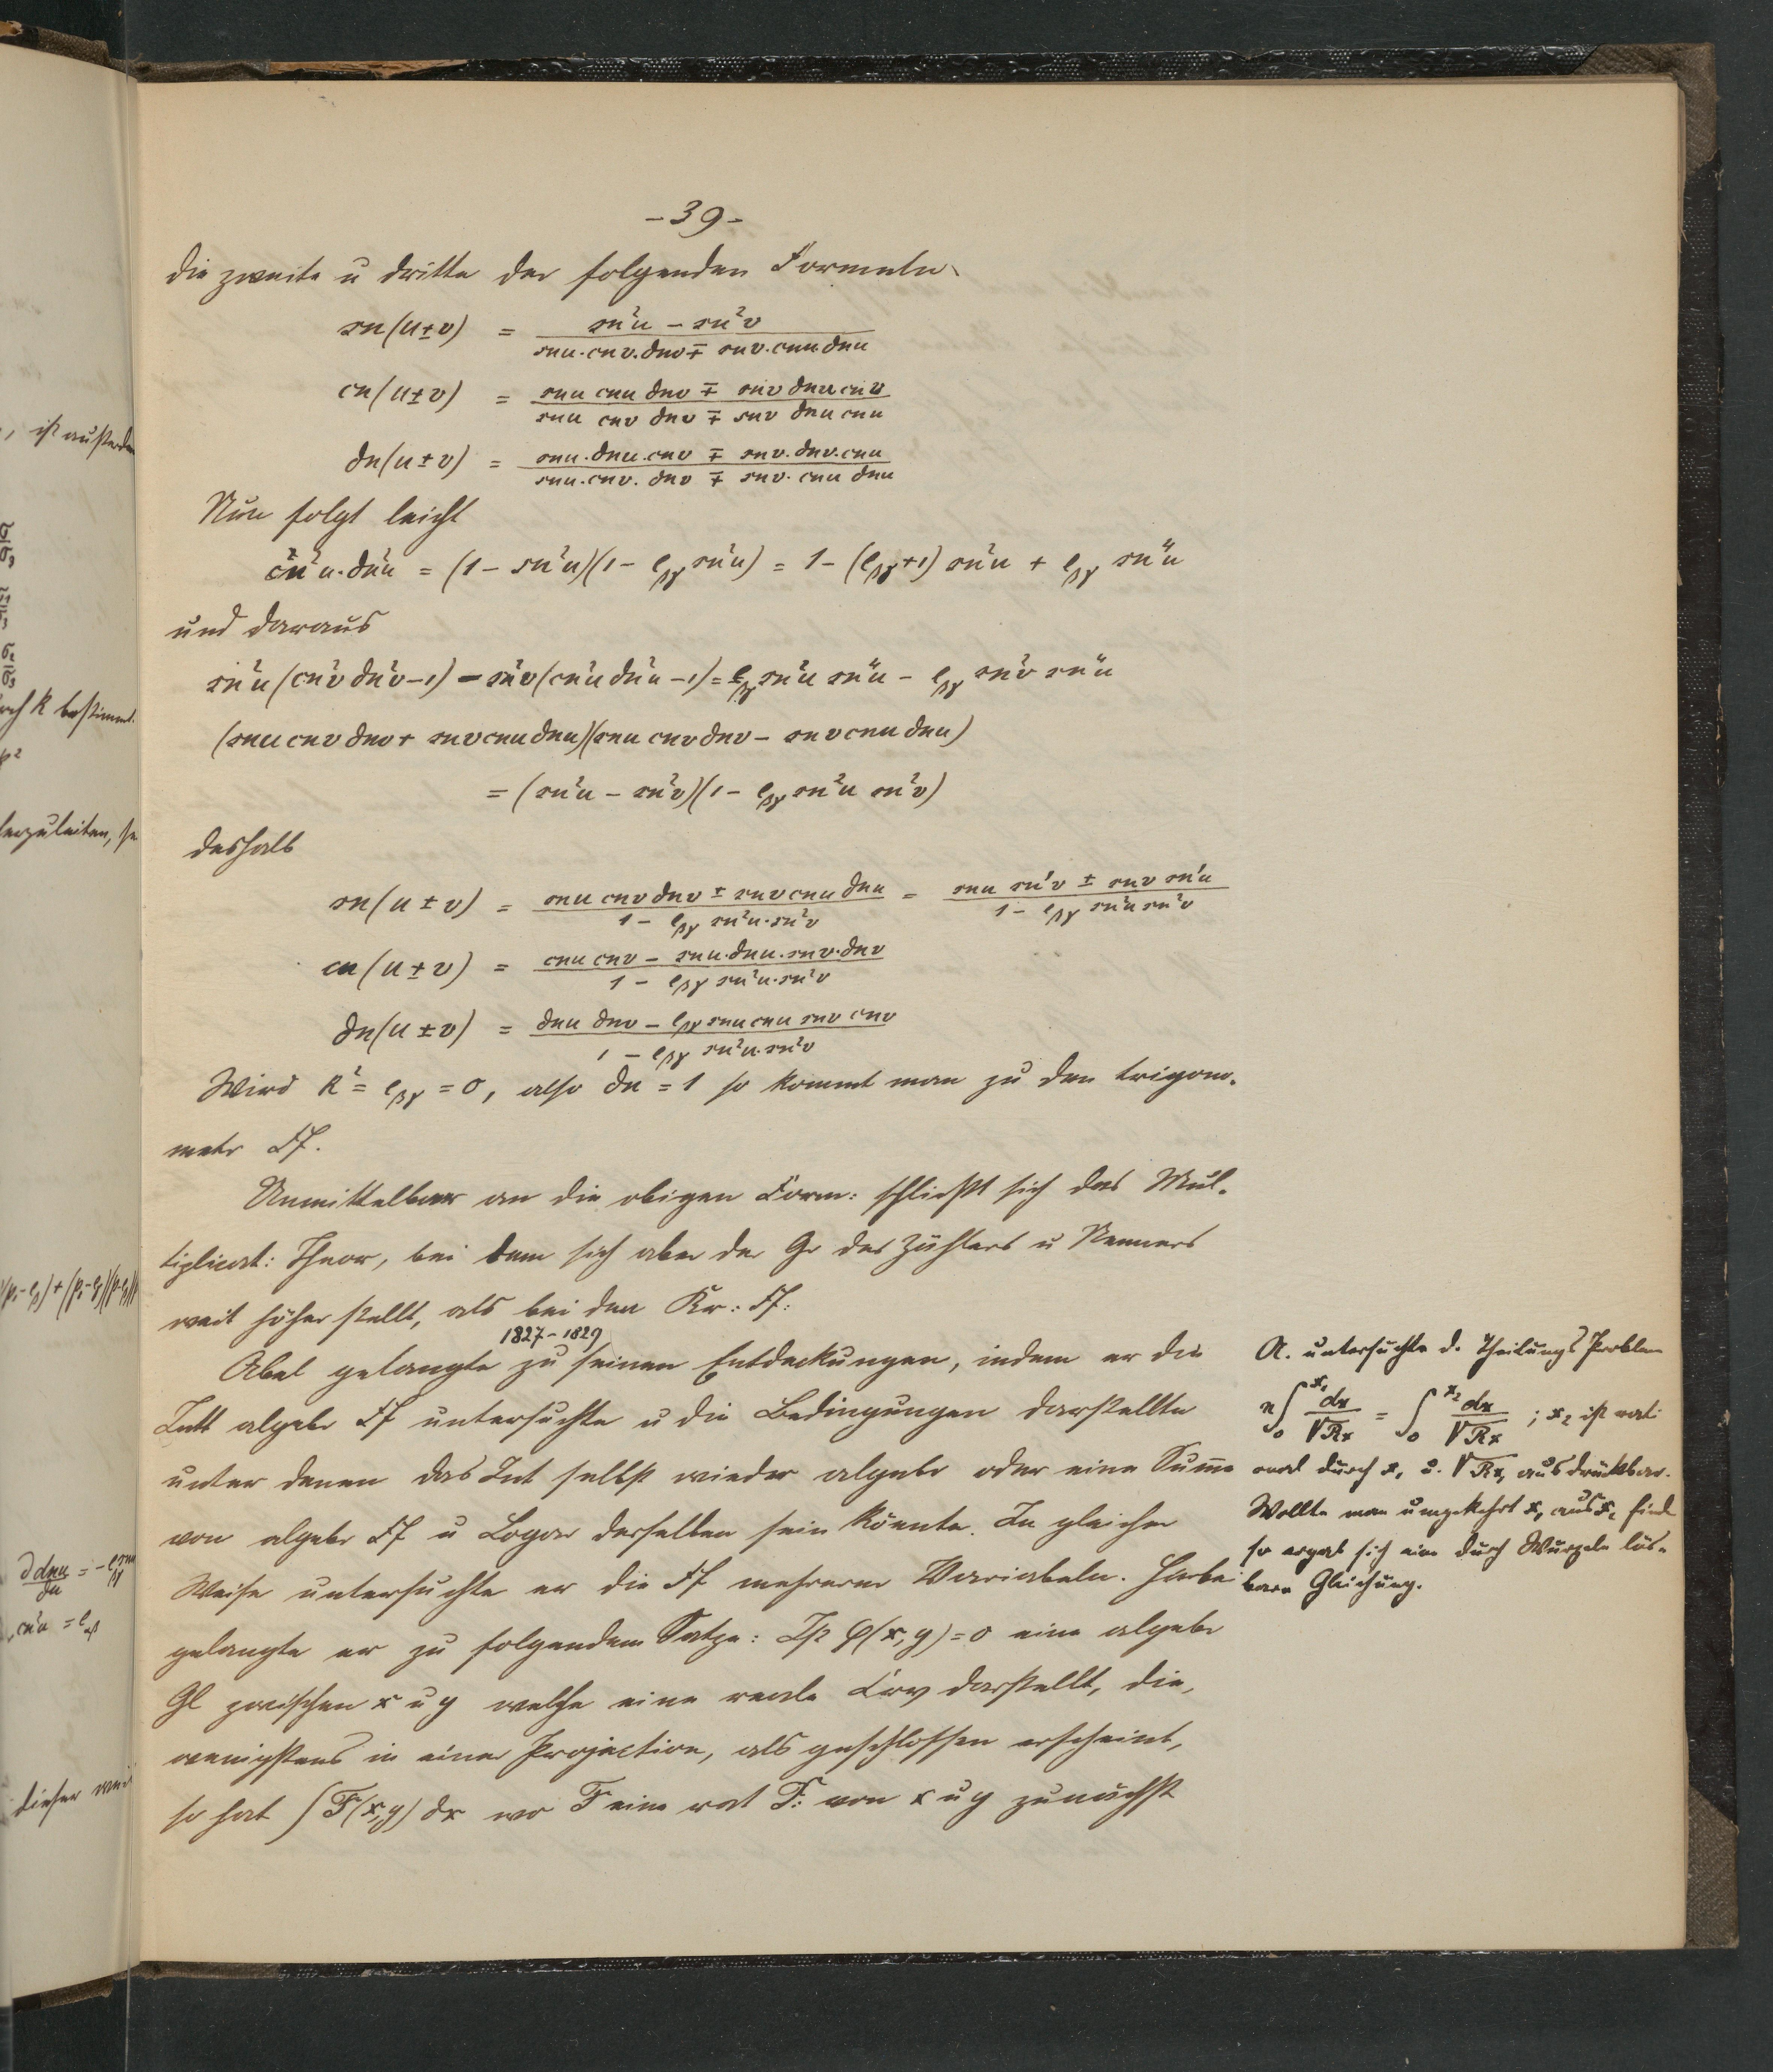 -39-
die zweite u dritte der folgenden Formeln
sn(u±v) = (sn²u - sn²v) / (snu·cnv·dnv ∓ snv·cnu dnu)
cn(u±v) = (snu cnu dnv ∓ snv dnu cnv) / (snu cnv dnv ∓ snv dnu cnu)
dn(u±v) = (snu·dnu·cnv ∓ snv·dnv·cnu) / (snu·cnv·dnv ∓ snv·cnu dnu)
Nun folgt leicht
cn²u·dn²u = (1 - sn²u)(1 - e_βγ sn²u) = 1 - (e_βγ+1) sn²u + e_βγ sn⁴u
und daraus
sn²u(cn²v dn²v-1) - sn²v(cn²u dn²u-1) = e_βγ sn²u sn⁴u - e_βγ sn²v sn⁴u
(snu cnv dnv + snv cnu dnu)(snu cnv dnv - snv cnu dnu)
= (sn²u - sn²v)(1 - e_βγ sn²u sn²v)
deshalb
sn(u±v) = (snu cnv dnv ± snv cnu dnu) / (1 - e_βγ sn²u·sn²v) = (snu sn'v ± snv sn'u) / (1 - e_βγ sn²u sn²v)
cn(u±v) = (cnu cnv - snu·dnu·snv·dnv) / (1 - e_βγ sn²u·sn²v)
dn(u±v) = (dnu dnv - e_βγ snu cnu snv cnv) / (1 - e_βγ sn²u·sn²v)
Wird k² = e_βγ = 0, also dn = 1 so kommt man zu den trigono-
metr Ff.
Unmittelbar an die obigen Form: schließt sich das Mul-
tiplicat: Theor, bei dem sich aber der Gr des Zählers u Nenners
weit höher stellt, als bei den Kr: Ff:
1827-1829
Abel gelangte zu seinen Entdeckungen, indem er die
Intt algebr Ff untersuchte u die Bedingungen darstellte
unter denen das Int selbst wieder algebr oder eine Summe
von algebr Ff u Logar derselben sein könnte. In gleicher
Weise untersuchte er die Ff mehrerer Variabeln. Hierbei
gelangte er zu folgendem Satze: Ist φ(x,y)=0 eine algebr
Gl zwischen x u y welche eine reale Curv darstellt, die,
wenigstens in einer Projection, als geschlossen erscheint,
so hat ∫F(x,y) dx wo F eine rat F: von x u y zunächst
A. untersuchte d. Theilungs Problem
n∫₀^x₁ dx/√Rx = ∫₀^x₂ dx/√Rx ; x₂ ist rati
onal durch x₁ u. √Rx₁ ausdrückbar.
Wollte man umgekehrt x₁ aus x₂ find
so ergab sich eine durch Wurzeln lös-
bare Gleichung.
, ist außerdem
rch k bestimmt.
herzuleiten, se
dieser